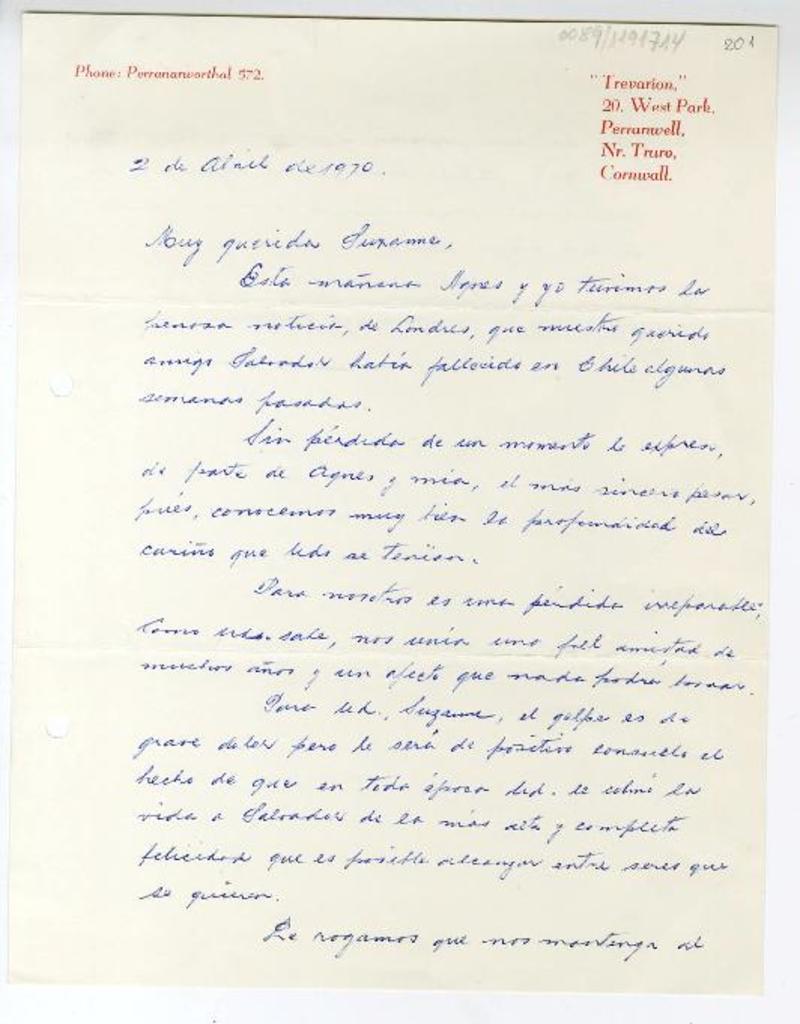 0089/1191714
201
Phone: Perranarworthal 572.
"Trevarion,"
20. West Park,
Perranwell,
Nr. Truro,
Cornwall.
2 de Abril de 1970.
Muy querida Suzanne,
Esta mañana Agnes y yo tuvimos la
penosa noticia, de Londres, que nuestro querido
amigo Salvador había fallecido en Chile algunas
semanas pasadas.
Sin pérdida de un momento le expreso,
de parte de Agnes y mía, el más sincero pesar,
pués, conocemos muy bien la profundidad del
cariño que Uds se tenían.
Para nosotros es una pérdida irreparable;
Como Ud. sabe, nos unía una fiel amistad de
muchos años y un afecto que nada podrá borrar.
Para Ud., Suzanne, el golpe es de
grave dolor pero le será de positivo consuelo el
hecho de que en toda época Ud. le colmó la
vida a Salvador de la más alta y completa
felicidad que es posible alcanzar entre seres que
se quieren.
Le rogamos que nos mantenga al